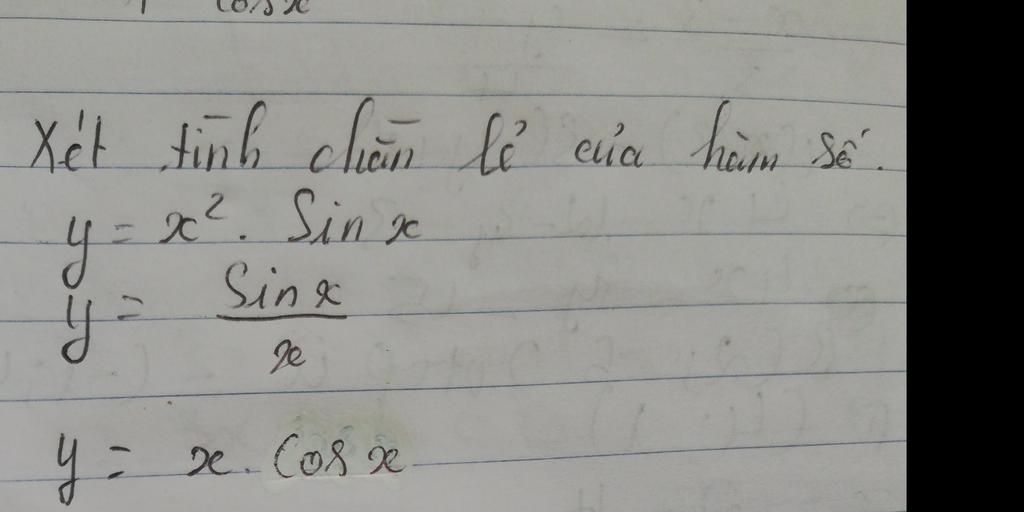 cosx
Xét tính chẵn lẻ của hàm số.
y = x². Sin x
y = Sin x / x
y = x. Cos x